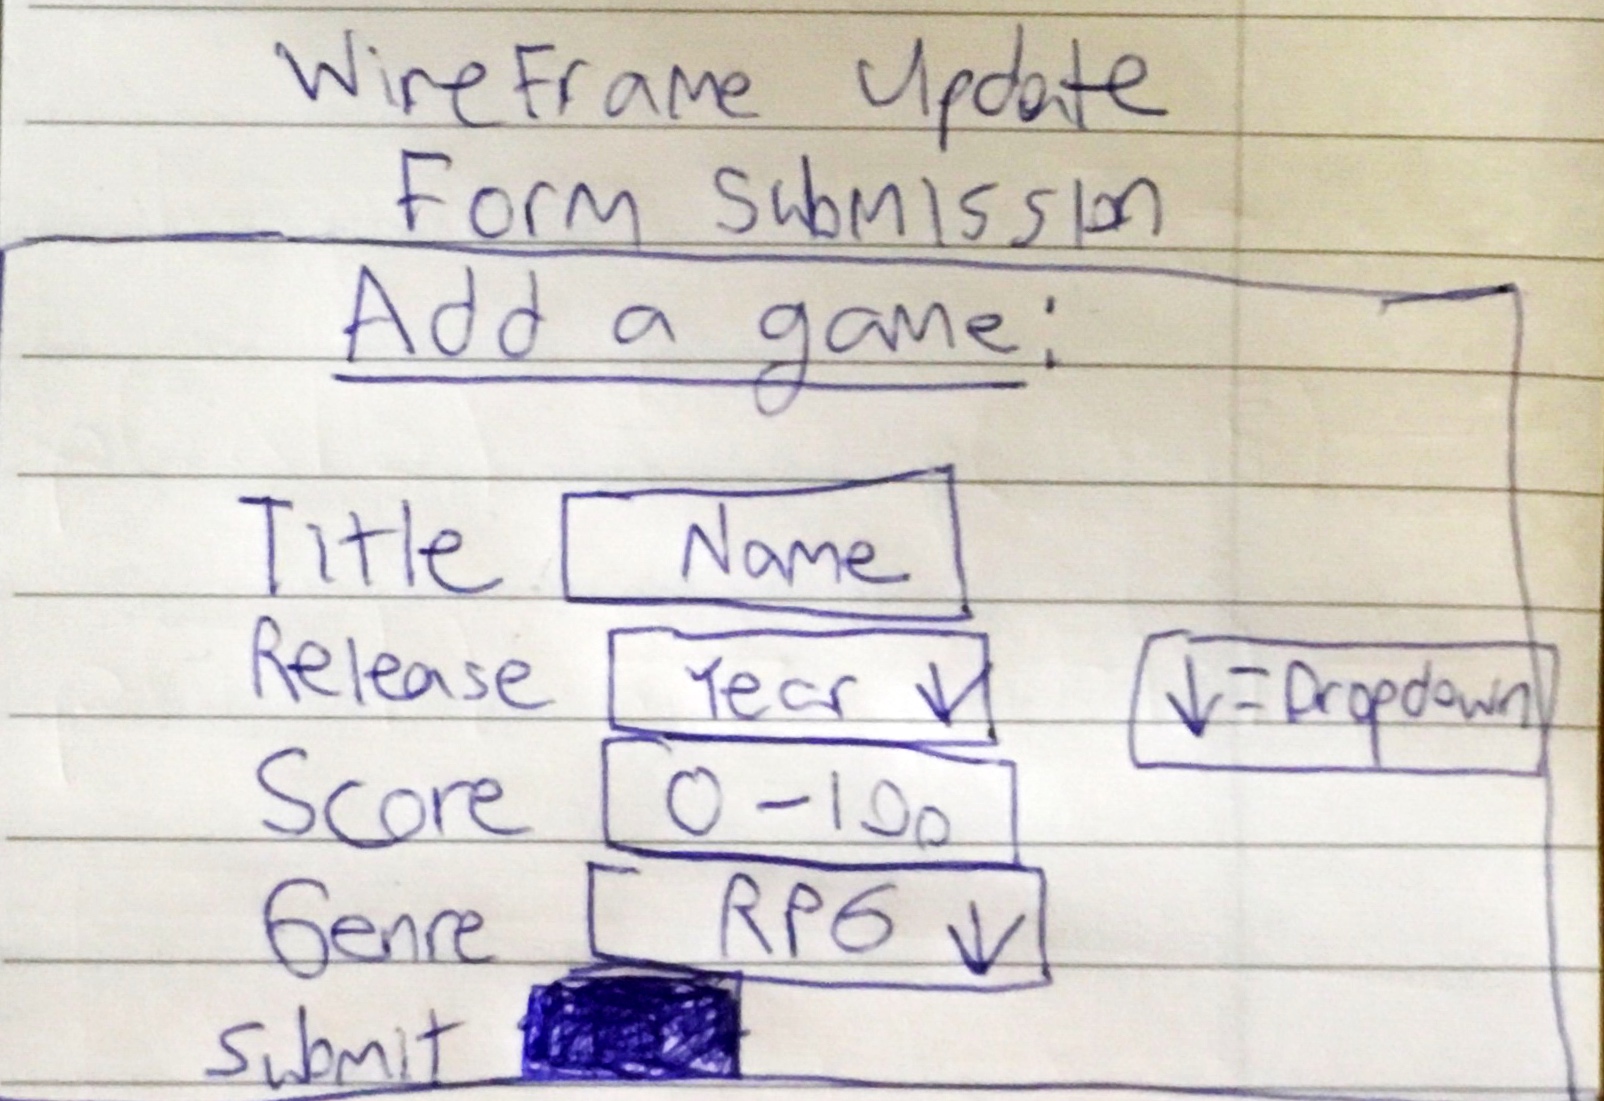 WireFrame Update
Form Submission
Add a game:
Title Name
Release Year ↓
↓=Dropdown
Score 0-100
Genre RPG ↓
Submit